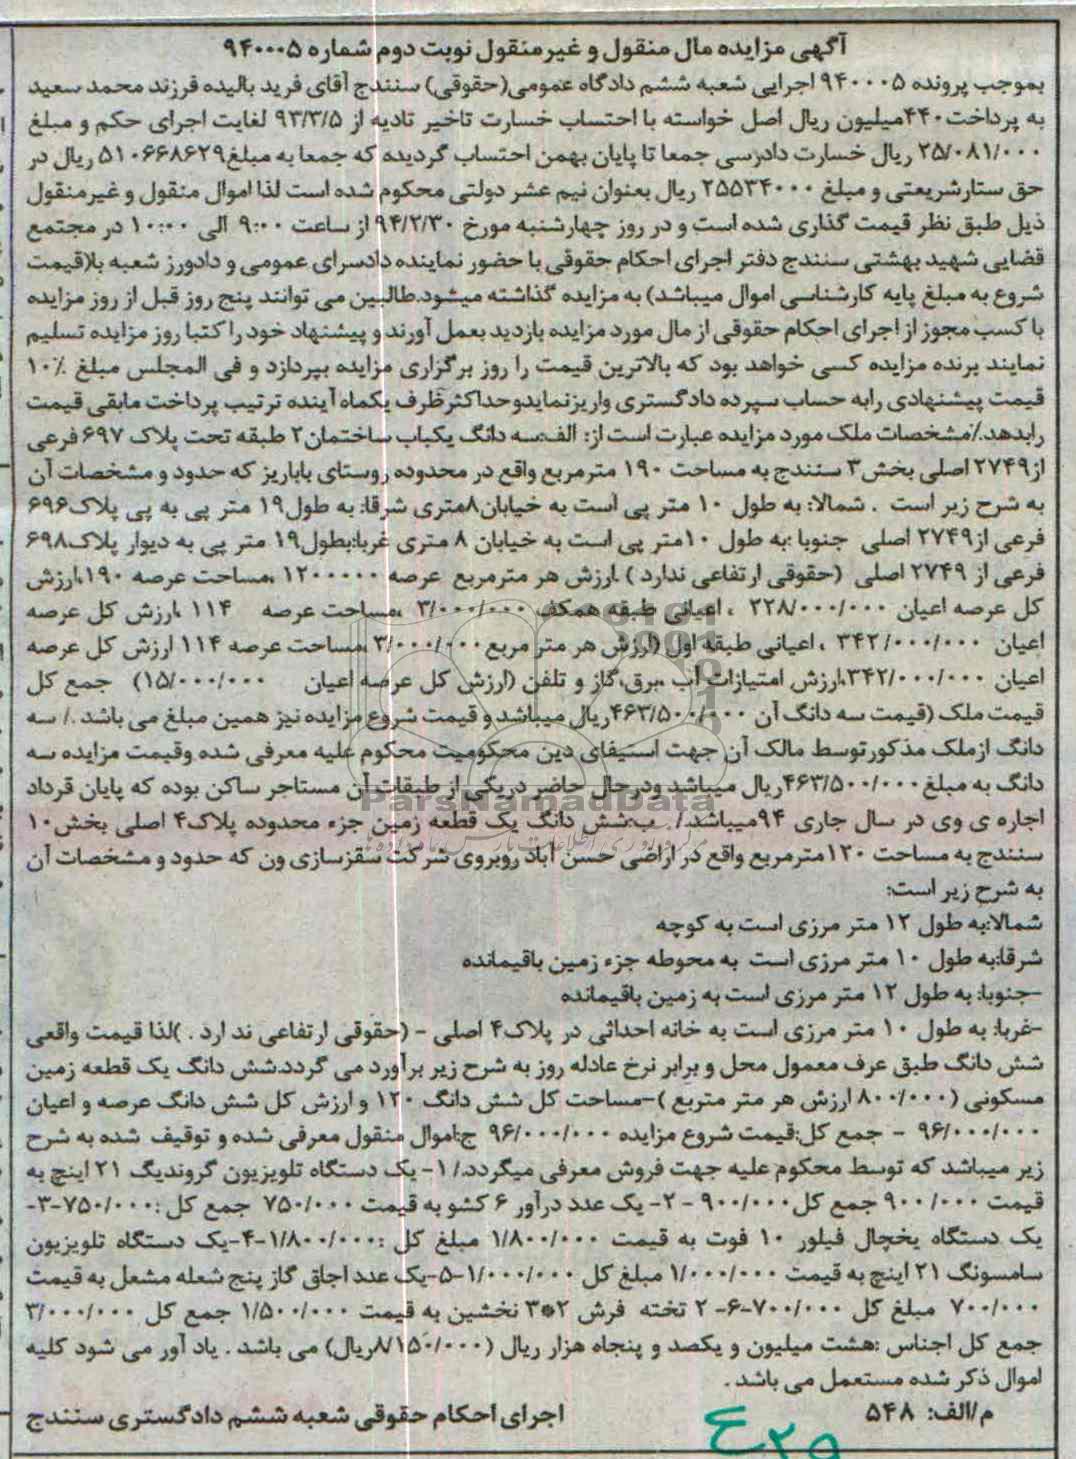 آگهی مزایده مال منقول و غیرمنقول نوبت دوم شماره ۹۴۰۰۰۵
بموجب پرونده ۹۴۰۰۰۵ اجرایی شعبه ششم دادگاه عمومی(حقوقی) سنندج آقای فرید بالیده فرزند محمد سعید
به پرداخت۴۴۰میلیون ریال اصل خواسته با احتساب خسارت تاخیر تادیه از ۹۳/۳/۵ لغایت اجرای حکم و مبلغ
۲۵/۰۸۱/۰۰۰ ریال خسارت دادرسی جمعا تا پایان بهمن احتساب گردیده که جمعا به مبلغ۵۱۰۶۶۸۶۲۹ ریال در
حق ستارشریعتی و مبلغ ۲۵۵۳۴۰۰۰ ریال بعنوان نیم عشر دولتی محکوم شده است لذا اموال منقول و غیرمنقول
ذیل طبق نظر قیمت گذاری شده است و در روز چهارشنبه مورخ ۹۴/۲/۳۰ از ساعت ۹:۰۰ الی ۱۰:۰۰ در مجتمع
قضایی شهید بهشتی سنندج دفتر اجرای احکام حقوقی با حضور نماینده دادسرای عمومی و دادورز شعبه بلاقیمت
شروع به مبلغ پایه کارشناسی اموال میباشد) به مزایده گذاشته میشود.طالبین می توانند پنج روز قبل از روز مزایده
با کسب مجوز از اجرای احکام حقوقی از مال مورد مزایده بازدید بعمل آورند و پیشنهاد خود را کتبا روز مزایده تسلیم
نمایند برنده مزایده کسی خواهد بود که بالاترین قیمت را روز برگزاری مزایده بپردازد و فی المجلس مبلغ ۱۰٪
قیمت پیشنهادی رابه حساب سپرده دادگستری واریزنمایدوحداکثرظرف یکماه آینده ترتیب پرداخت مابقی قیمت
رابدهد./مشخصات ملک مورد مزایده عبارت است از: الف:سه دانگ یکباب ساختمان۲ طبقه تحت پلاک ۶۹۷ فرعی
از۲۷۴۹ اصلی بخش۳ سنندج به مساحت ۱۹۰ مترمربع واقع در محدوده روستای باباریز که حدود و مشخصات آن
به شرح زیر است . شمالا: به طول ۱۰ متر پی است به خیابان۸متری شرقا: به طول۱۹ متر پی به پی پلاک۶۹۶
فرعی از۲۷۴۹ اصلی جنوبا :به طول ۱۰متر پی است به خیابان ۸ متری غربا:بطول۱۹ متر پی به دیوار پلاک۶۹۸
فرعی از ۲۷۴۹ اصلی (حقوقی ارتفاعی ندارد ) .ارزش هر مترمربع عرصه ۱۲۰۰۰۰۰ ،مساحت عرصه ۱۹۰،ارزش
کل عرصه اعیان ۲۲۸/۰۰۰/۰۰۰ ، اعیانی طبقه همکف ۳/۰۰۰/۰۰۰ ،مساحت عرصه ۱۱۴ ،ارزش کل عرصه
اعیان ۳۴۲/۰۰۰/۰۰۰ ، اعیانی طبقه اول (ارزش هر متر مربع ۳/۰۰۰/۰۰۰ ،مساحت عرصه ۱۱۴ ارزش کل عرصه
اعیان ۳۴۲/۰۰۰/۰۰۰،ارزش امتیازات آب ،برق،گاز و تلفن (ارزش کل عرصه اعیان ۱۵/۰۰۰/۰۰۰) جمع کل
قیمت ملک (قیمت سه دانگ آن ۴۶۳/۵۰۰/۰۰۰ریال میباشد و قیمت شروع مزایده نیز همین مبلغ می باشد ./ سه
دانگ ازملک مذکورتوسط مالک آن جهت استیفای دین محکومیت محکوم علیه معرفی شده وقیمت مزایده سه
دانگ به مبلغ۴۶۳/۵۰۰/۰۰۰ریال میباشد ودرحال حاضر دریکی از طبقات آن مستاجر ساکن بوده که پایان قرداد
ParsNamadData
اجاره ی وی در سال جاری ۹۴میباشد./ ب:شش دانگ یک قطعه زمین جزء محدوده پلاک۴ اصلی بخش۱۰
سنندج به مساحت ۱۲۰مترمربع واقع در اراضی حسن آباد روبروی شرکت سقزسازی ون که حدود و مشخصات آن
به شرح زیر است:
شمالا:به طول ۱۲ متر مرزی است به کوچه
شرقا:به طول ۱۰ متر مرزی است به محوطه جزء زمین باقیمانده
-جنوبا: به طول ۱۲ متر مرزی است به زمین باقیمانده
-غربا: به طول ۱۰ متر مرزی است به خانه احداثی در پلاک۴ اصلی - (حقوقی ارتفاعی ند ارد . )لذا قیمت واقعی
شش دانگ طبق عرف معمول محل و برابر نرخ عادله روز به شرح زیر برآورد می گردد.شش دانگ یک قطعه زمین
مسکونی (۸۰۰/۰۰۰ ارزش هر متر متربع )-مساحت کل شش دانگ ۱۲۰ و ارزش کل شش دانگ عرصه و اعیان
۹۶/۰۰۰/۰۰۰ - جمع کل:قیمت شروع مزایده ۹۶/۰۰۰/۰۰۰ ج:اموال منقول معرفی شده و توقیف شده به شرح
زیر میباشد که توسط محکوم علیه جهت فروش معرفی میگردد./ ۱- یک دستگاه تلویزیون گروندیگ ۲۱ اینچ به
قیمت ۹۰۰/۰۰۰ جمع کل۹۰۰/۰۰۰ -۲- یک عدد درآور ۶ کشو به قیمت ۷۵۰/۰۰۰ جمع کل :۷۵۰/۰۰۰-۳-
یک دستگاه یخچال فیلور ۱۰ فوت به قیمت ۱/۸۰۰/۰۰۰ مبلغ کل :۱/۸۰۰/۰۰۰-۴-یک دستگاه تلویزیون
سامسونگ ۲۱ اینچ به قیمت ۱/۰۰۰/۰۰۰ مبلغ کل ۱/۰۰۰/۰۰۰-۵-یک عدد اجاق گاز پنج شعله مشعل به قیمت
۷۰۰/۰۰۰ مبلغ کل ۷۰۰/۰۰۰-۶- ۲ تخته فرش ۲*۳ نخشین به قیمت ۱/۵۰۰/۰۰۰ جمع کل ۳/۰۰۰/۰۰۰
جمع کل اجناس :هشت میلیون و یکصد و پنجاه هزار ریال (۸/۱۵۰/۰۰۰ریال) می باشد . یاد آور می شود کلیه
اموال ذکر شده مستعمل می باشد .
م/الف: ۵۴۸ اجرای احکام حقوقی شعبه ششم دادگستری سنندج